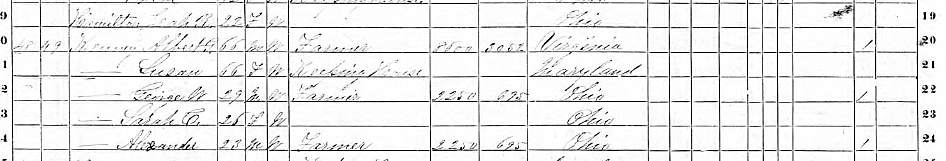 9 Hamilton Leah R. 22 F W Ohio 19
0 48 49 Kenney Albert G 66 M W Farmer 8600 3052 Virginia 1 20
1 — Susan 66 F W Keeping House Maryland 21
2 — George W 29 M W Farmer 2250 695 Ohio 1 22
3 — Sarah C. 26 F W Ohio 23
4 — Alexander 23 M W Farmer 2250 695 Ohio 1 24